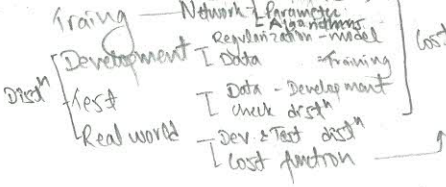 Traing — Network - Parameter
Algorithms
Regularization - model
Development I Data - Training
Distⁿ Test I Data - Development
check distⁿ
Real world - Dev & Test distⁿ
Cost function
Cost